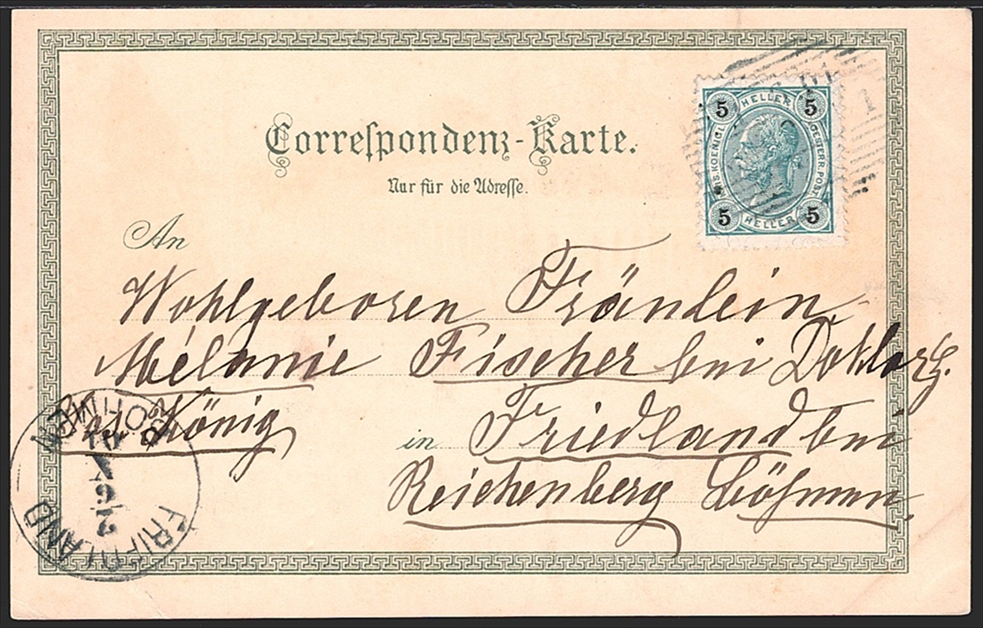 Correspondenz-Karte.
Nur für die Adresse.
5 HELLER 5
K.K. OESTERR. POST
5 HELLER 5
An
Wohlgeboren Fräulein
Mélanie Fischer bei
König in Friedland bei
Reichenberg Böhmen
FRIEDLAND
BÖHMEN